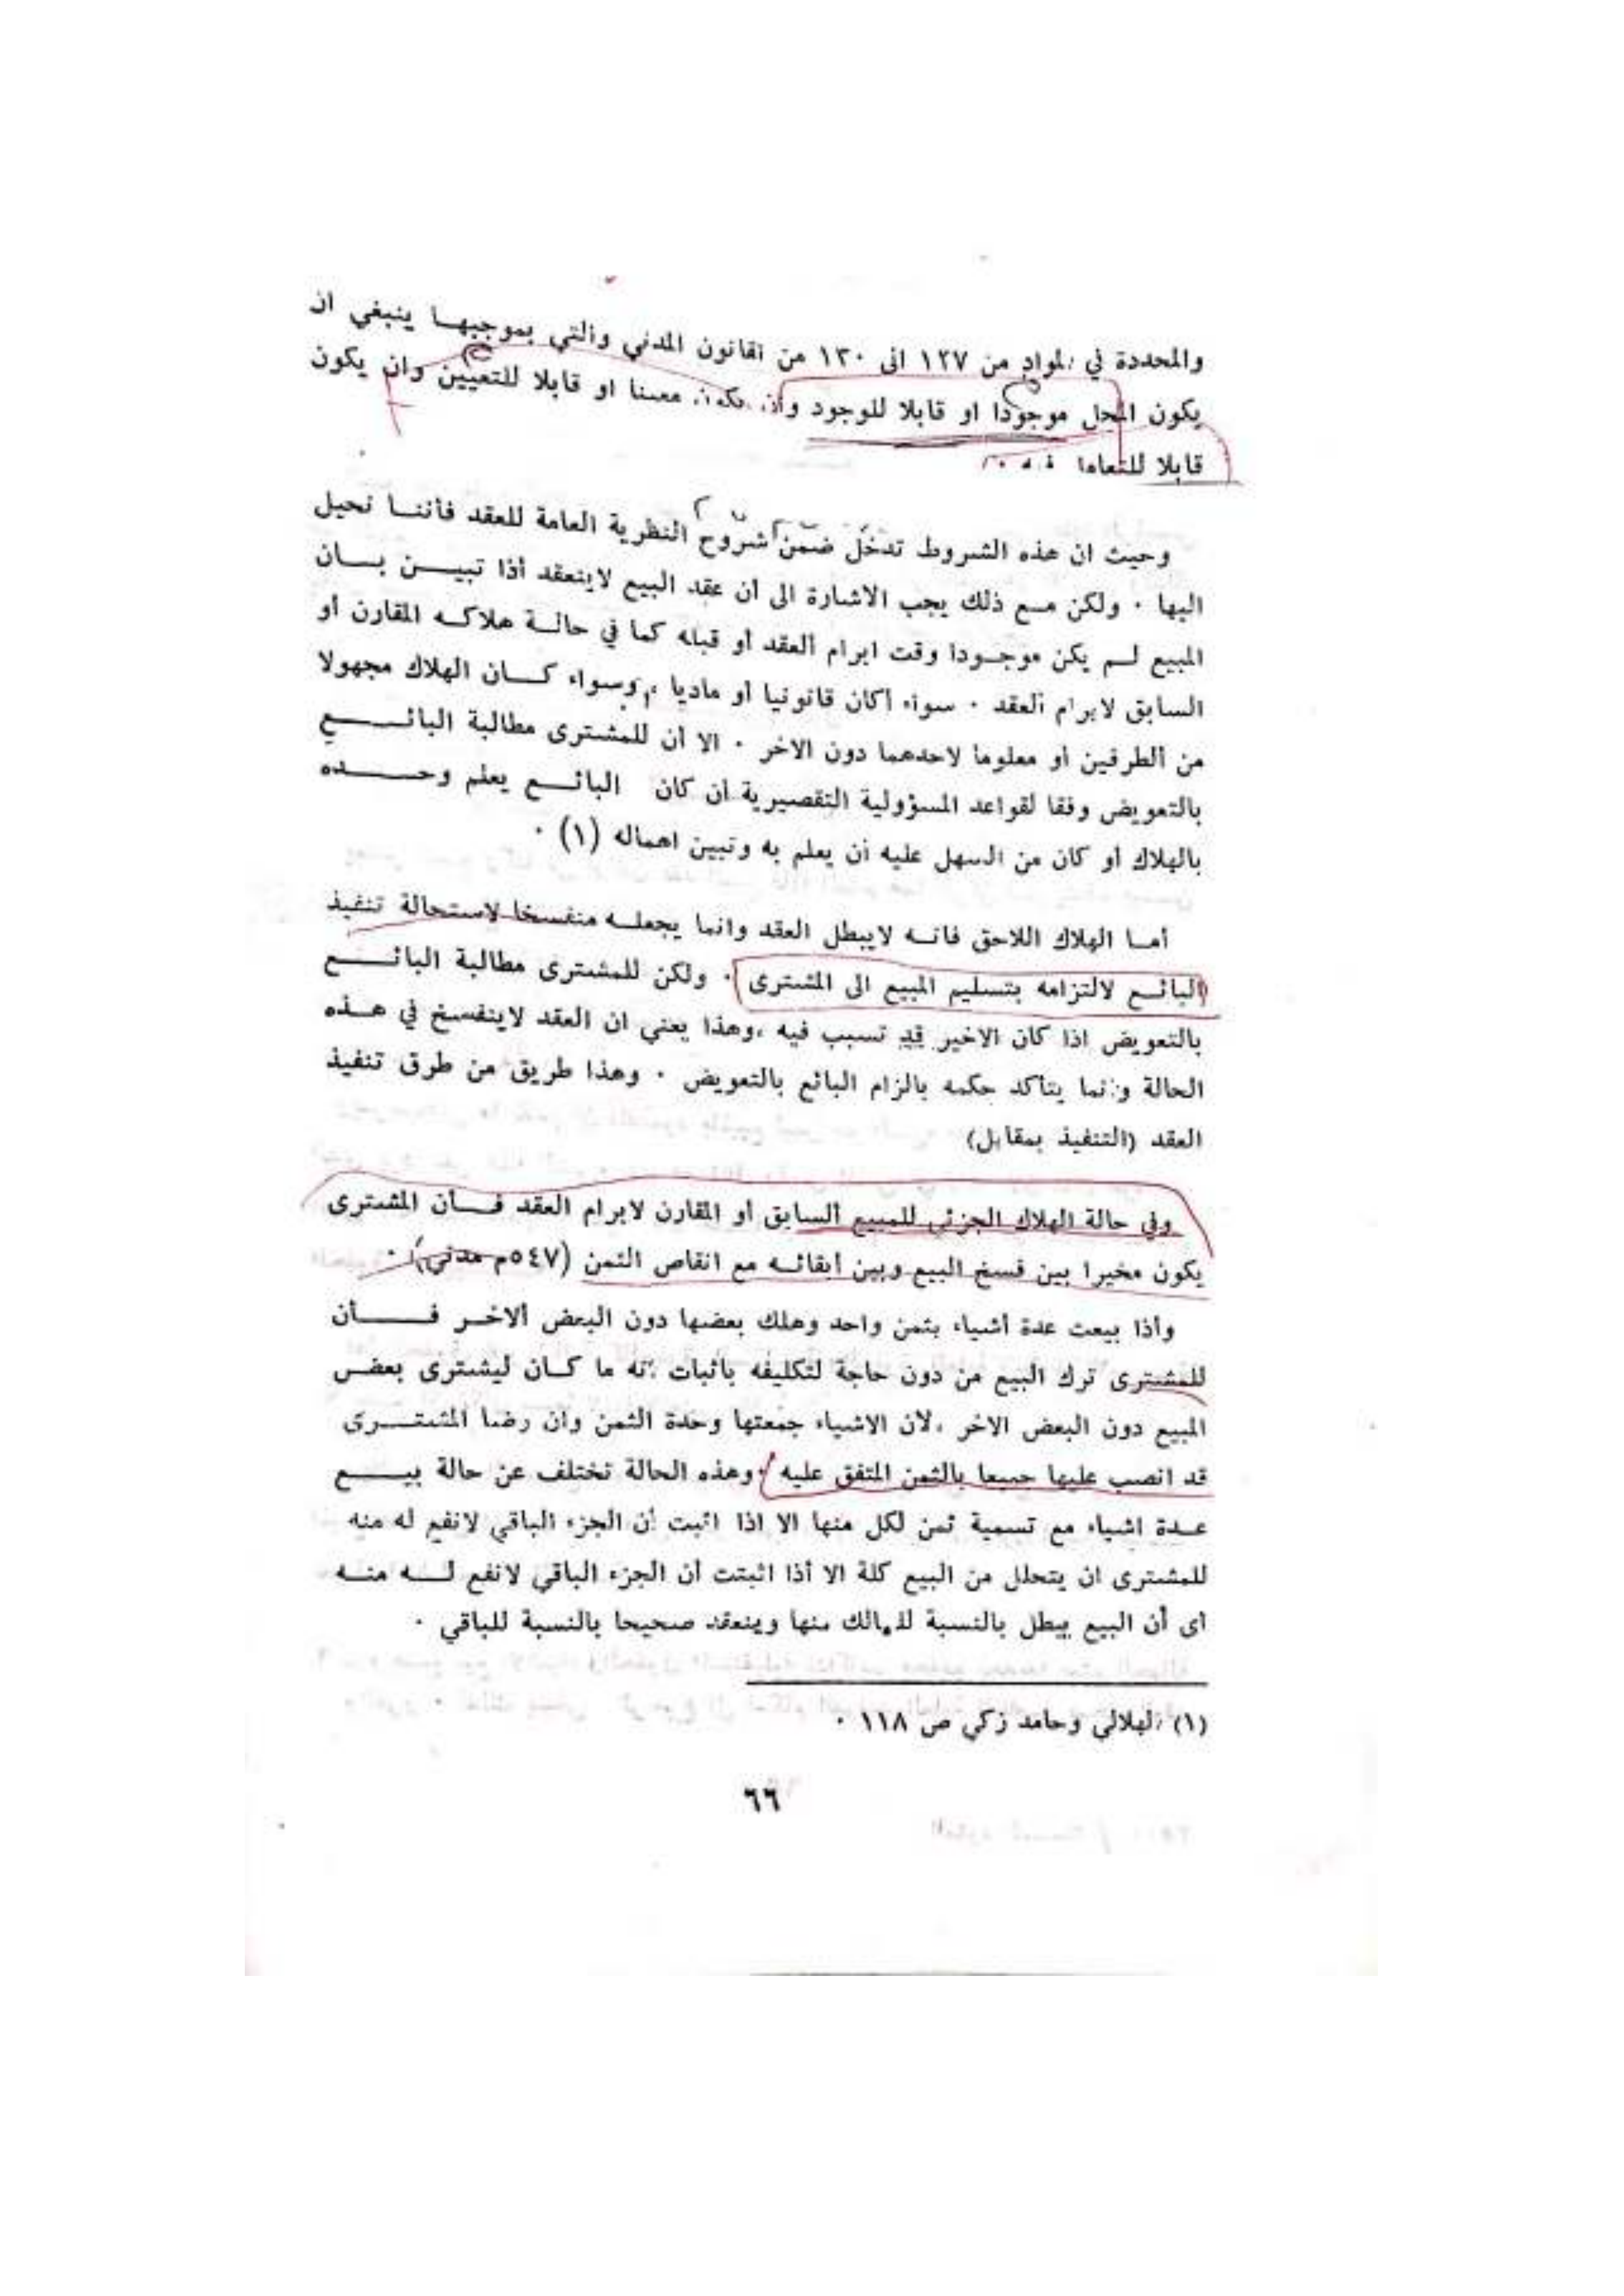 والمحددة في المواد من ١٢٧ الى ١٣٠ من القانون المدني والتي بموجبها ينبغي ان
يكون المحل موجودا او قابلا للوجود وان يكون معينا او قابلا للتعيين وان يكون
قابلا للتعامل
وحيث ان هذه الشروط تدخل ضمن شروح النظرية العامة للعقد فأننا نحيل
اليها ٠ ولكن مع ذلك يجب الاشارة الى ان عقد البيع لاينعقد أذا تبين بان
المبيع لم يكن موجودا وقت ابرام العقد أو قبله كما في حالة هلاكه المقارن أو
السابق لابرام العقد ٠ سواء أكان قانونيا أو ماديا ، وسواء كان الهلاك مجهولا
من الطرفين أو معلوما لاحدهما دون الاخر ٠ الا ان للمشترى مطالبة البائع
بالتعويض وفقا لقواعد المسؤولية التقصيرية ان كان البائع يعلم وحده
بالهلاك أو كان من السهل عليه أن يعلم به وتبين اهماله (١) ٠
أما الهلاك اللاحق فانه لايبطل العقد وانما يجعله منفسخا لاستحالة تنفيذ
البائع لالتزامه بتسليم المبيع الى المشترى ٠ ولكن للمشترى مطالبة البائع
بالتعويض اذا كان الاخير قد تسبب فيه ،وهذا يعني ان العقد لاينفسخ في هذه
الحالة وانما يتأكد حكمه بالزام البائع بالتعويض ٠ وهذا طريق من طرق تنفيذ
العقد (التنفيذ بمقابل)
وفي حالة الهلاك الجزئي للمبيع السابق أو المقارن لابرام العقد فأن المشترى
يكون مخيرا بين فسخ البيع وبين أبقائه مع انقاص الثمن (٥٤٧م مدني) ٠
وأذا بيعت عدة أشياء بثمن واحد وهلك بعضها دون البعض ألاخر فأن
للمشترى ترك البيع من دون حاجة لتكليفه باثبات أنه ما كان ليشترى بعض
المبيع دون البعض الاخر ،لان الاشياء جمعتها وحدة الثمن وان رضا المشترى
قد انصب عليها جميعا بالثمن المتفق عليه ٠وهذه الحالة تختلف عن حالة بيع
عدة اشياء مع تسمية ثمن لكل منها الا اذا اثبت أن الجزء الباقي لانفع له منه
للمشترى ان يتحلل من البيع كلة الا أذا اثبتت أن الجزء الباقي لانفع له منه
اى أن البيع يبطل بالنسبة للهالك منها وينعقد صحيحا بالنسبة للباقي ٠
(١) الهلالي وحامد زكي ص ١١٨ ٠
٦٦